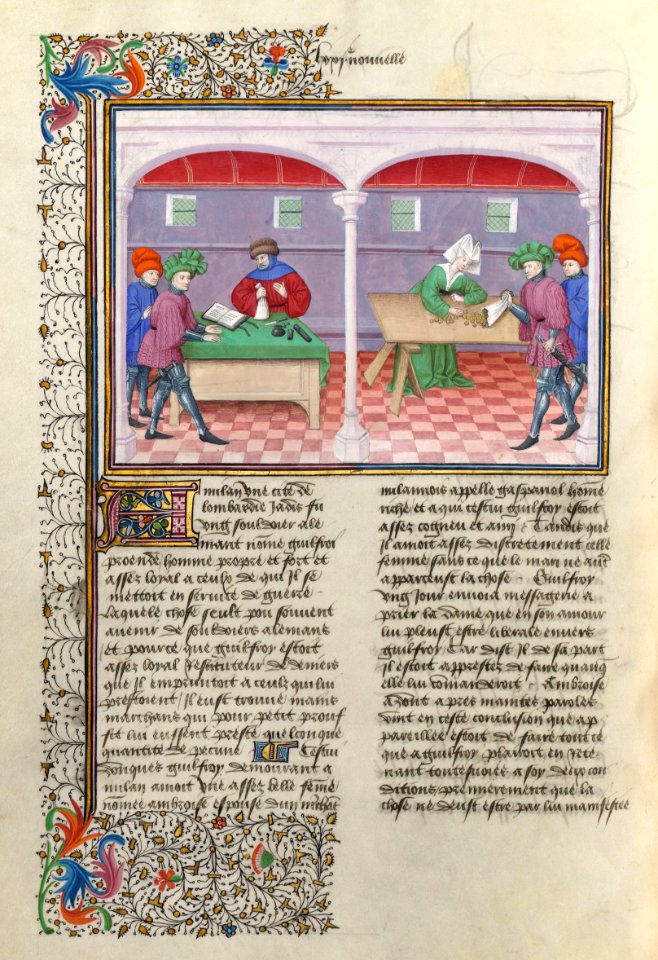 nouuelle
A milan vne cite de
lombardie Jadis fu
vng souldoier ale
mant nomme guilfroi
proendomme propre et fort et
assez loyal a ceulx de qui Jl se
mettoit en seruice de guerre
laquele chose seult pou souuent
auenir de souldoiers alemans
et pource que guilfroy estoit
assez loyal restituteur de deniers
que Jl empruntoit a ceulx qui lui
prestoient Jl eust trouue mains
marchans qui pour petit prouf
fit lui eussent preste quelconque
quantite de pecune Cestui
doncques guilfroy demourant a
milan amoit vne assez belle feme
nomee ambroise espouse dun marchat
milannois appelle gasparuol home
riche et a qui cestui guilfroy estoit
assez cogneu et ami Tandis que
Jl amoit assez discretement celle
femme sans ce que le mari ne aul
apparceust la chose Guilfroy
vng Jour enuoia messagerie a
prier la dame que en son amour
lui pleust estre liberale enuers
guilfroy Car dist Jl de sa part
Jl estoit apprestez de faire quanq
elle lui comanderoit Ambroise
adont apres maintes paroles
vint en ceste conclusion que ap
pareillee estoit de faire tout ce
que a guilfroy plairoit en rete
nant toutesuoies a soy deux con
ditions premierement que la
chose ne deust estre par lui manifestee